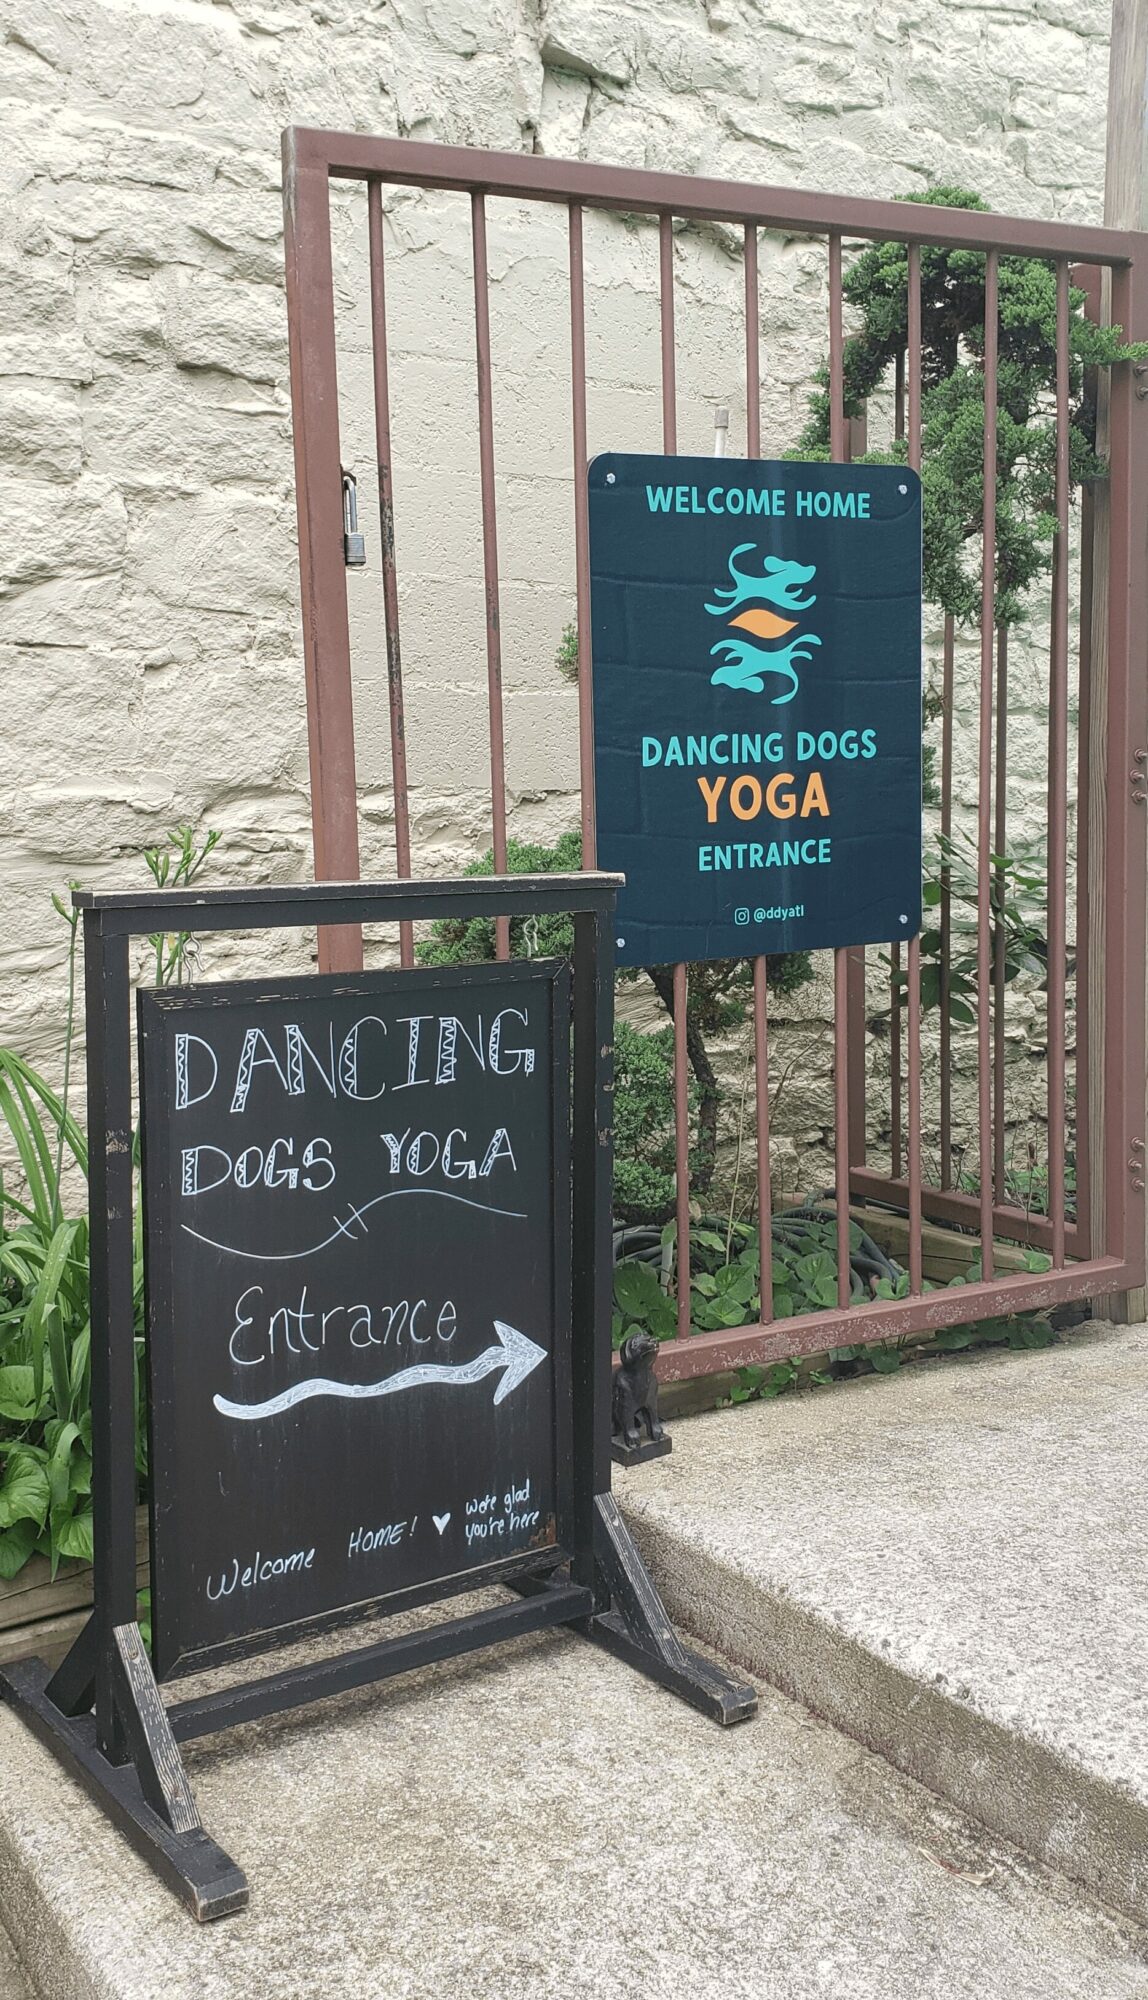 WELCOME HOME
DANCING DOGS
YOGA
ENTRANCE
@ddyatl
DANCING
DOGS YOGA
Entrance
Welcome HOME! ♥ we're glad
you're here